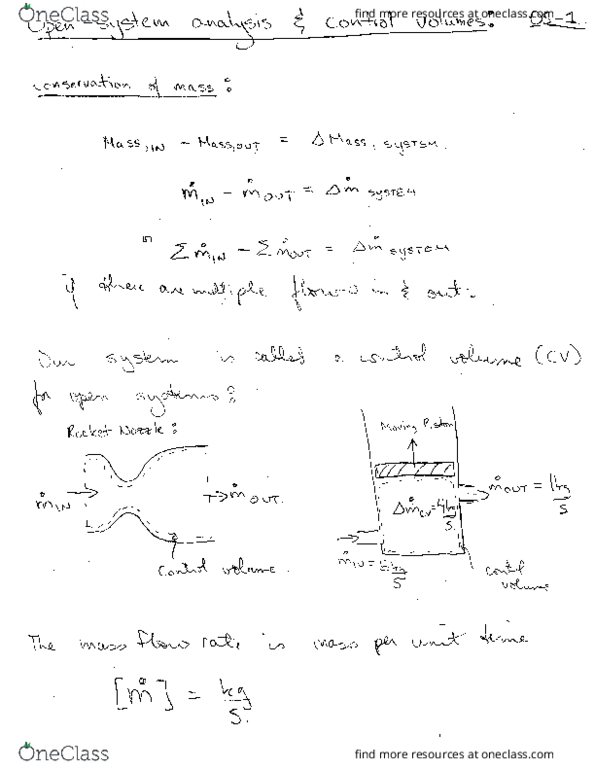 OneClass
find more resources at oneclass.com
Open system analysis & control volumes: 05-1
conservation of mass:
Mass,IN - Mass,OUT = ΔMass, SYSTEM
ṁIN - ṁOUT = Δṁ SYSTEM
Σṁ,IN - ΣṁOUT = Δṁ SYSTEM
if there are multiple flows in & out.
Our system is called a control volume (CV)
for open systems:
Rocket Nozzle:
Moving Piston
ṁIN
ṁOUT
ṁOUT = 1 kg/s
ΔṁCV = 4 kg/s
ṁIN = kg/s
control volume
control
volume
The mass flow rate is mass per unit time
[ṁ] = kg/s
OneClass
find more resources at oneclass.com